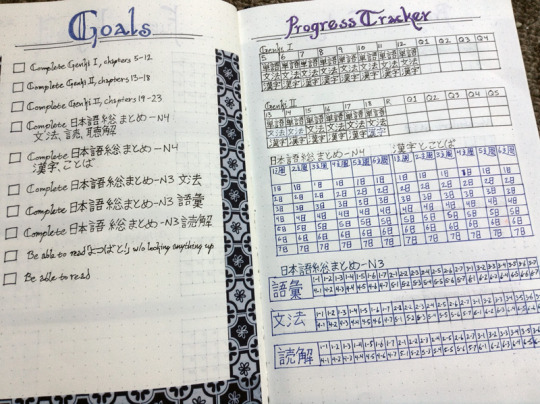 Goals
Complete Genki I, chapters 5-12
Complete Genki II, chapters 13-18
Complete Genki II, chapters 19-23
Complete 日本語総まとめ-N4
文法、読、聴解
Complete 日本語総まとめ-N4
漢字、ことば
Complete 日本語総まとめ-N3 文法
Complete 日本語総まとめ-N3 語彙
Complete 日本語総まとめ-N3 読解
Be able to read「よつばと!」w/o looking anything up
Be able to read
Progress Tracker
Genki I
5 6 7 8 9 10 11 12 Q1 Q2 Q3 Q4
単語 単語 単語 単語 単語 単語 単語 単語
文法 文法 文法 文法 文法 文法 文法 文法
漢字 漢字 漢字 漢字 漢字 漢字 漢字 漢字
Genki II
13 14 15 16 17 18 R Q1 Q2 Q3 Q4 Q5
単語 単語 単語 単語 単語 単語
文法 文法 文法 文法 文法 文法
漢字 漢字 漢字 漢字 漢字 漢字
日本語総まとめ-N4 漢字とことば
1週 2週 3週 4週 5週 6週 1週 2週 3週 4週 5週 6週
1日 1日 1日 1日 1日 1日 1日 1日 1日 1日 1日 1日
2日 2日 2日 2日 2日 2日 2日 2日 2日 2日 2日 2日
3日 3日 3日 3日 3日 3日 3日 3日 3日 3日 3日 3日
4日 4日 4日 4日 4日 4日 4日 4日 4日 4日 4日 4日
5日 5日 5日 5日 5日 5日 5日 5日 5日 5日 5日 5日
6日 6日 6日 6日 6日 6日 6日 6日 6日 6日 6日 6日
7日 7日 7日 7日 7日 7日 7日 7日 7日 7日 7日 7日
日本語総まとめ-N3
語彙
文法
読解